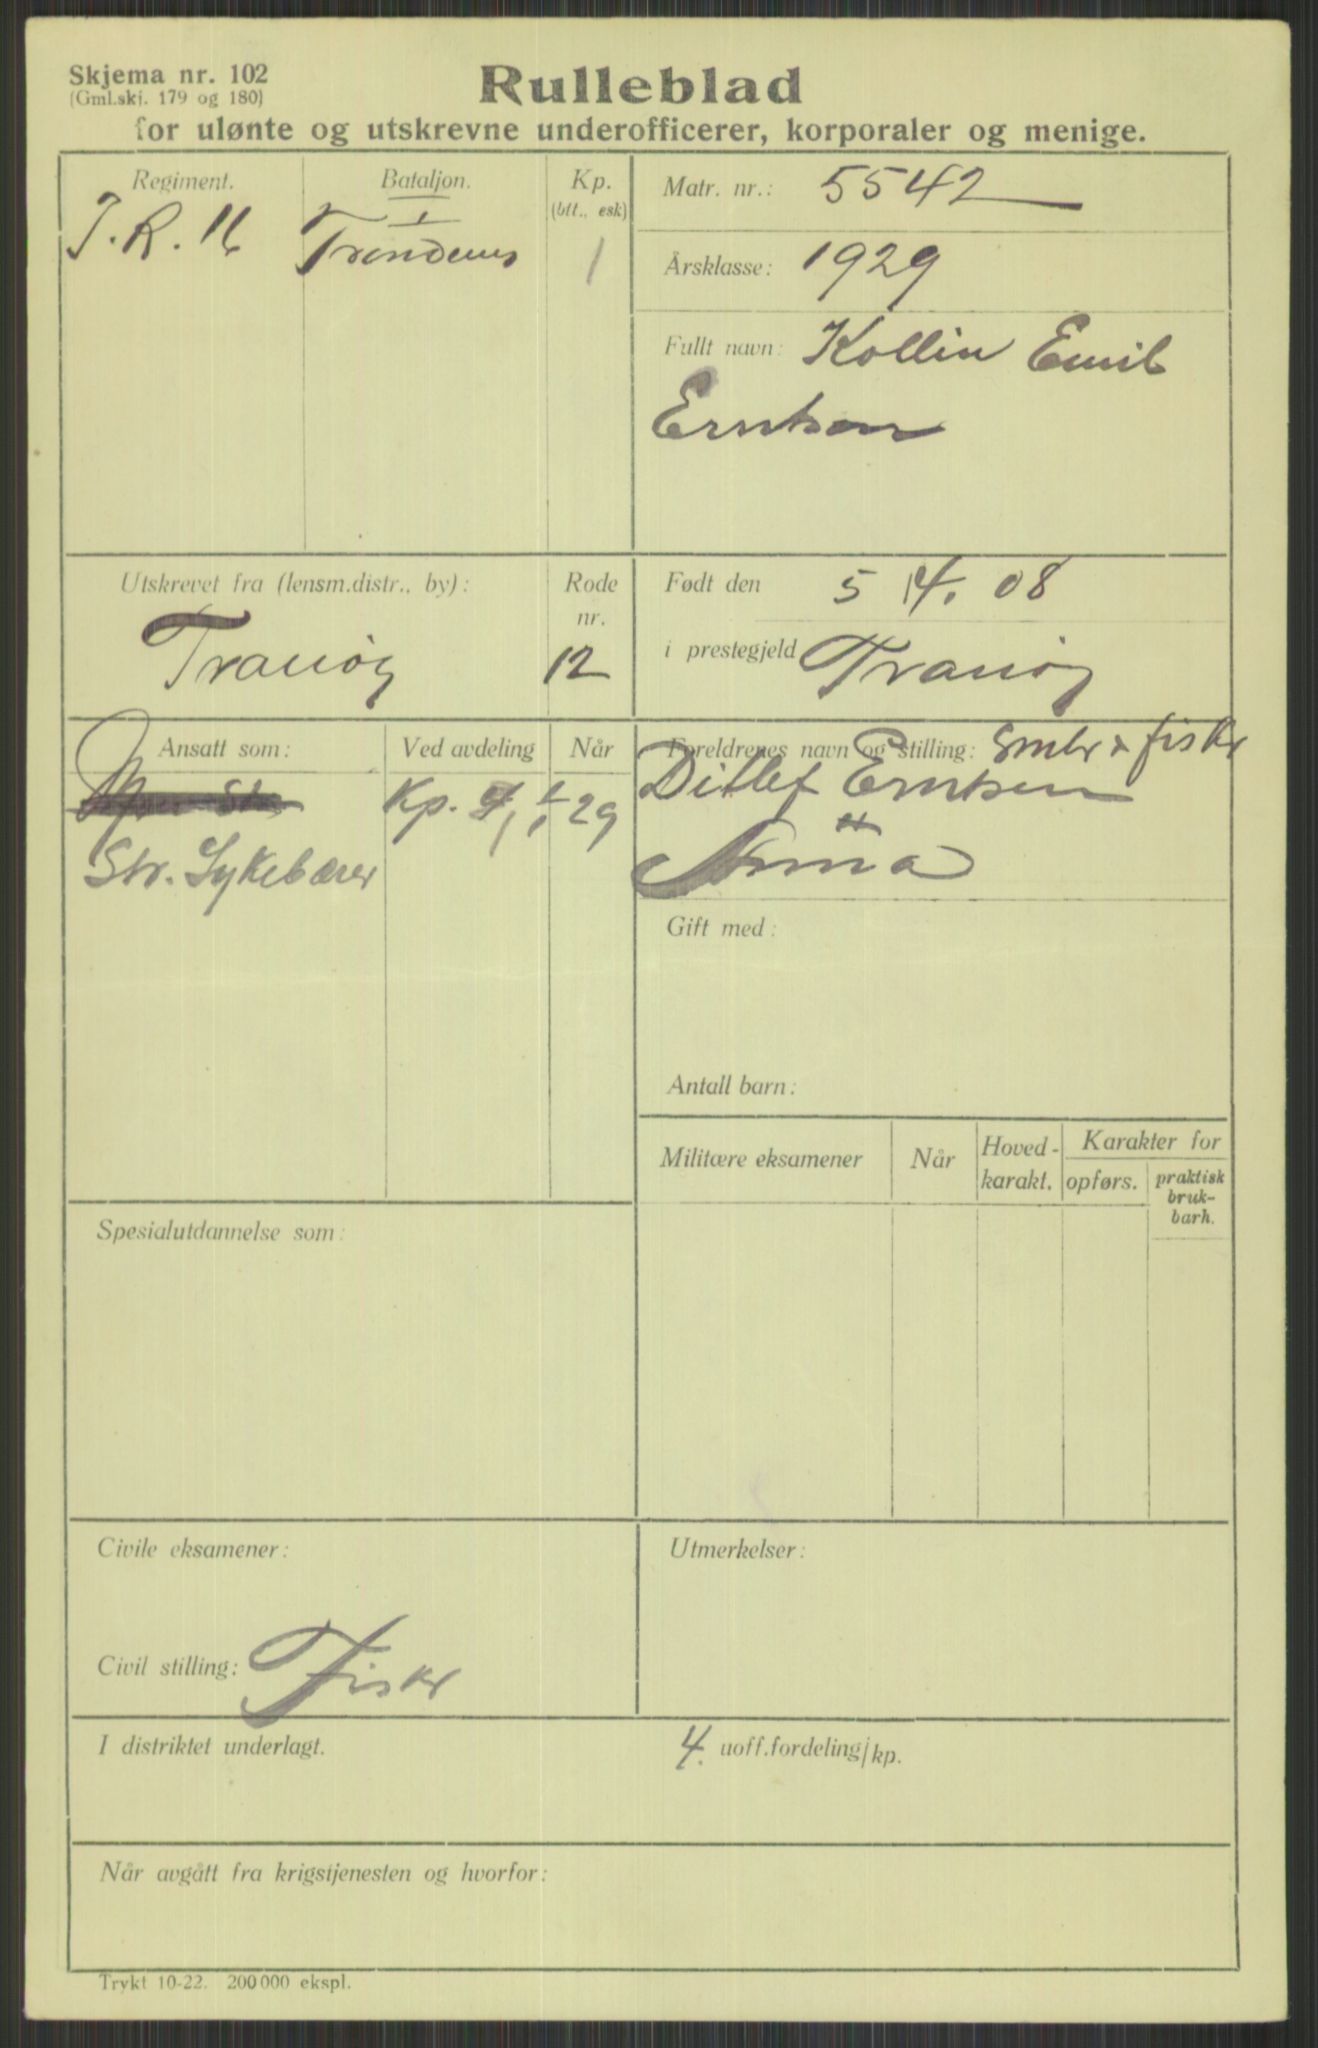 Skjema nr. 102
(Gml.skj. 179 og 180)
Rulleblad
for ulønte og utskrevne underofficerer, korporaler og menige.
Regiment.
I.R. 16
Bataljon.
I
Trondenes
Kp.
(btt., esk)
1
Matr. nr.: 5542
Årsklasse: 1929
Fullt navn: Kollin Emil
Erntsen
Utskrevet fra (lensm.distr., by):
Tranøy
Rode
nr.
12
Født den 5 4. 08
i prestegjeld Tranøy
Ansatt som:
Str. Sykebærer
Ved avdeling
Kp.
Når
29
Foreldrenes navn og stilling: Smbr & fisker
Ditlef Erntsen
Anna "
Gift med:
Antall barn:
Militære eksamener
Når
Hoved-
karakt.
Karakter for
opførs.
praktisk
bruk-
barh.
Spesialutdannelse som:
Civile eksamener:
Utmerkelser:
Civil stilling: Fisker
I distriktet underlagt.
4. uoff.fordeling/kp.
Når avgått fra krigstjenesten og hvorfor:
Trykt 10-22. 200000 ekspl.